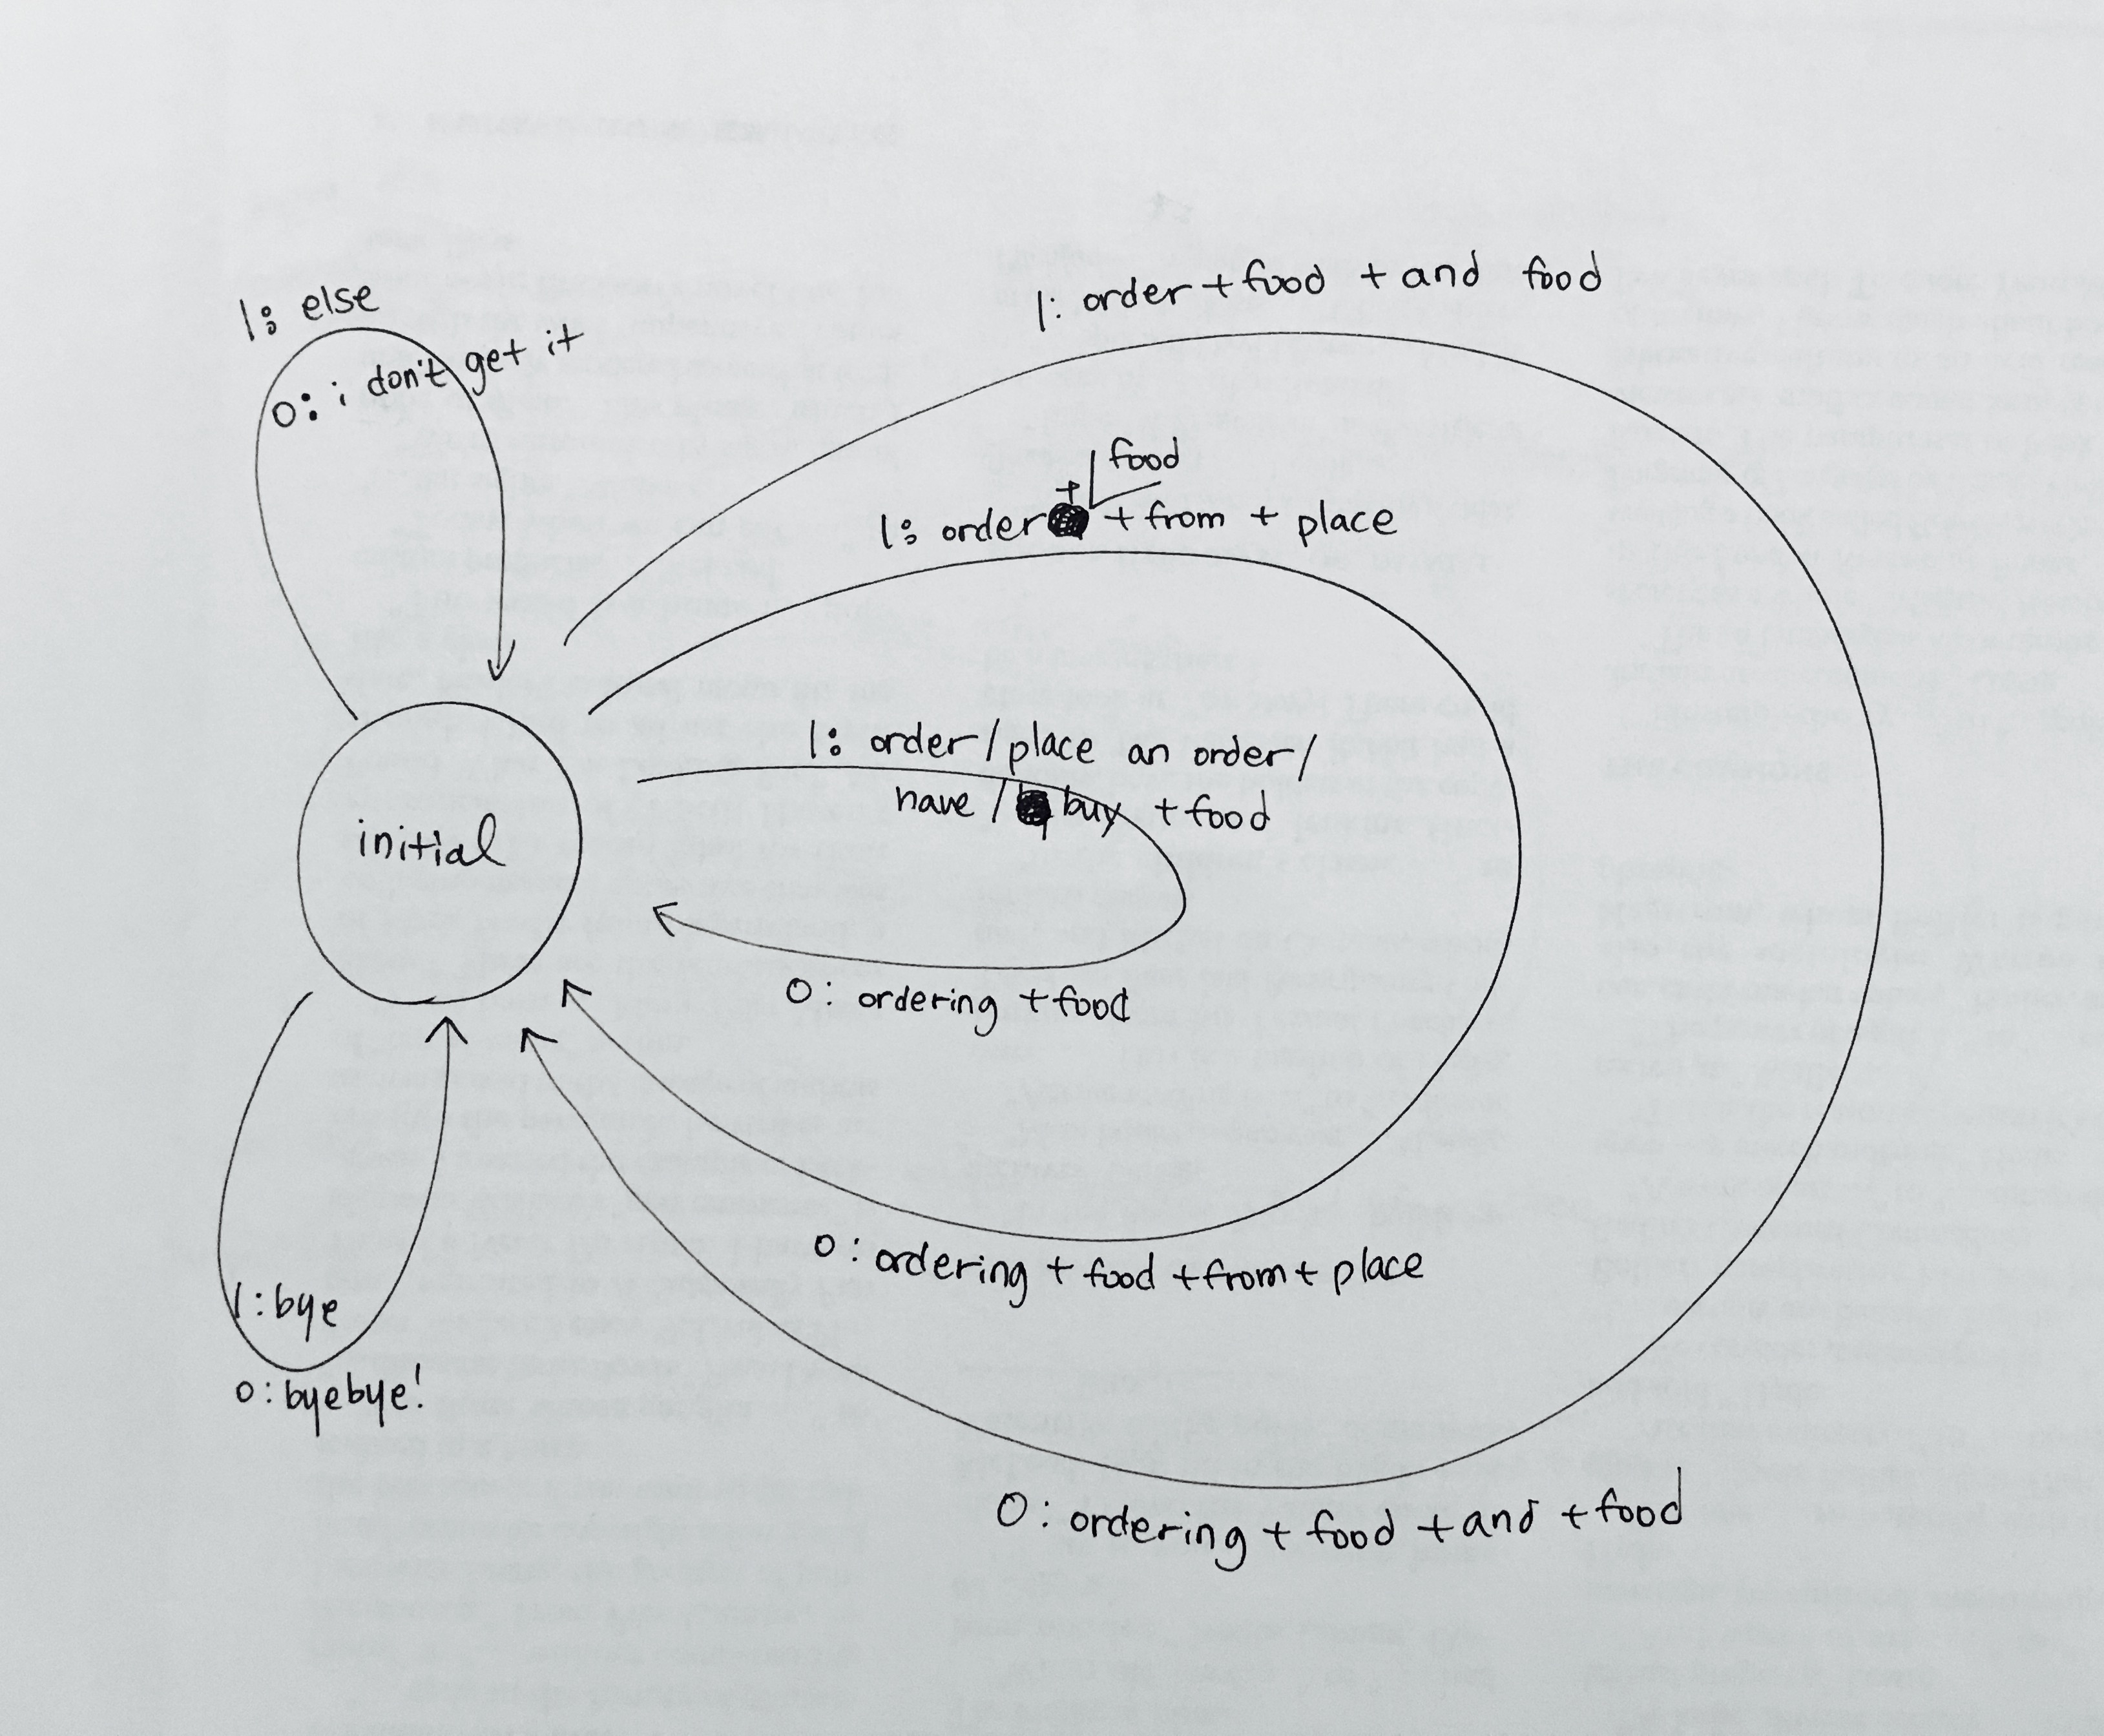 1: order + food + and food
1: else
0: i don't get it
food
+
1: order + from + place
1: order / place an order /
have / buy + food
initial
0: ordering + food
0: ordering + food + from + place
1: bye
0: byebye!
0: ordering + food + and + food